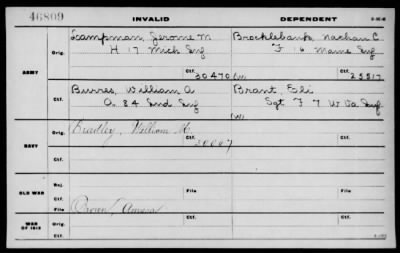 46809 INVALID DEPENDENT
ARMY
Orig. Lampman, Jerome M Brocklebank, Nathan C
H 17 Mich Inf F 16 Maine Inf
30470 Ctf. 25517
Ctf. Burres, William A Brant, Eli
A. 84 Ind Inf Sgt F 7 W Va Inf
NAVY
Orig. Bradley, William H. Ctf.
30007
Ctf.
OLD WAR
Rej. File
Ctf. File
WAR OF 1812
Orig. Brown, Amasa Ctf.
Ctf.